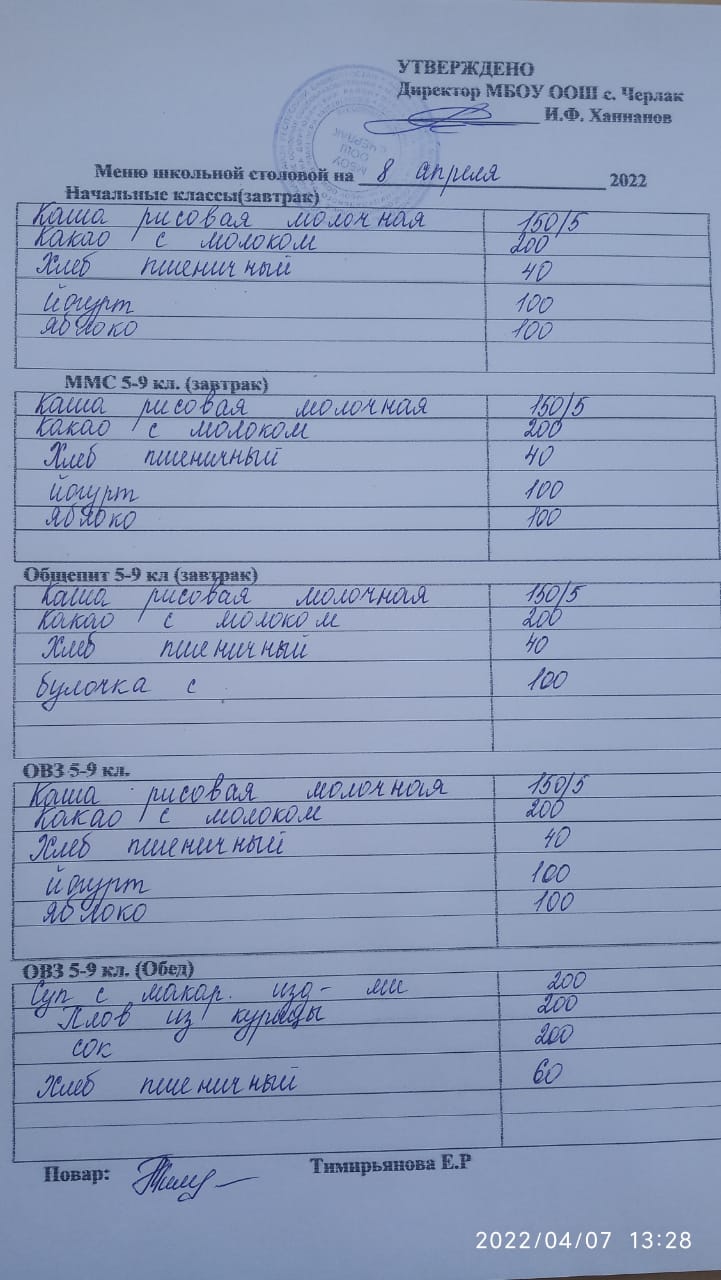 УТВЕРЖДЕНО
Директор МБОУ ООШ с. Черлак
И.Ф. Ханнанов
Меню школьной столовой на 8 апреля 2022
Начальные классы(завтрак)
Каша рисовая молочная 150/5
Какао с молоком 200
Хлеб пшеничный 40
йогурт 100
яблоко 100
ММС 5-9 кл. (завтрак)
Каша рисовая молочная 150/5
Какао с молоком 200
Хлеб пшеничный 40
йогурт 100
яблоко 100
Общепит 5-9 кл (завтрак)
Каша рисовая молочная 150/5
Какао с молоком 200
Хлеб пшеничный 40
булочка с 100
ОВЗ 5-9 кл.
Каша рисовая молочная 150/5
Какао с молоком 200
Хлеб пшеничный 40
йогурт 100
яблоко 100
ОВЗ 5-9 кл. (Обед)
Суп с макар. изд-ми 200
Плов из курицы 200
сок 200
Хлеб пшеничный 60
Повар: Тимирьянова Е.Р
2022/04/07 13:28